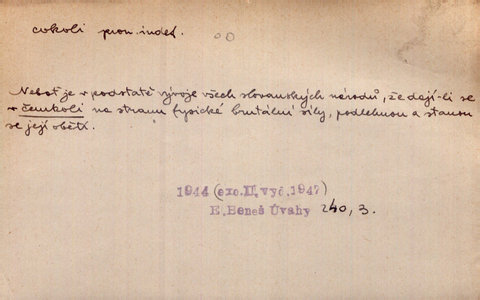 cokoli pron. indef.
Neboť je v podstatě vývoje všech slovanských národů, že dejí-li se
v čemkoli na stranu fysické brutální síly, podlehnou a stanou
se její obětí.
1944 (exc. II. vyd. 1947)
E. Beneš Úvahy 240, 3.